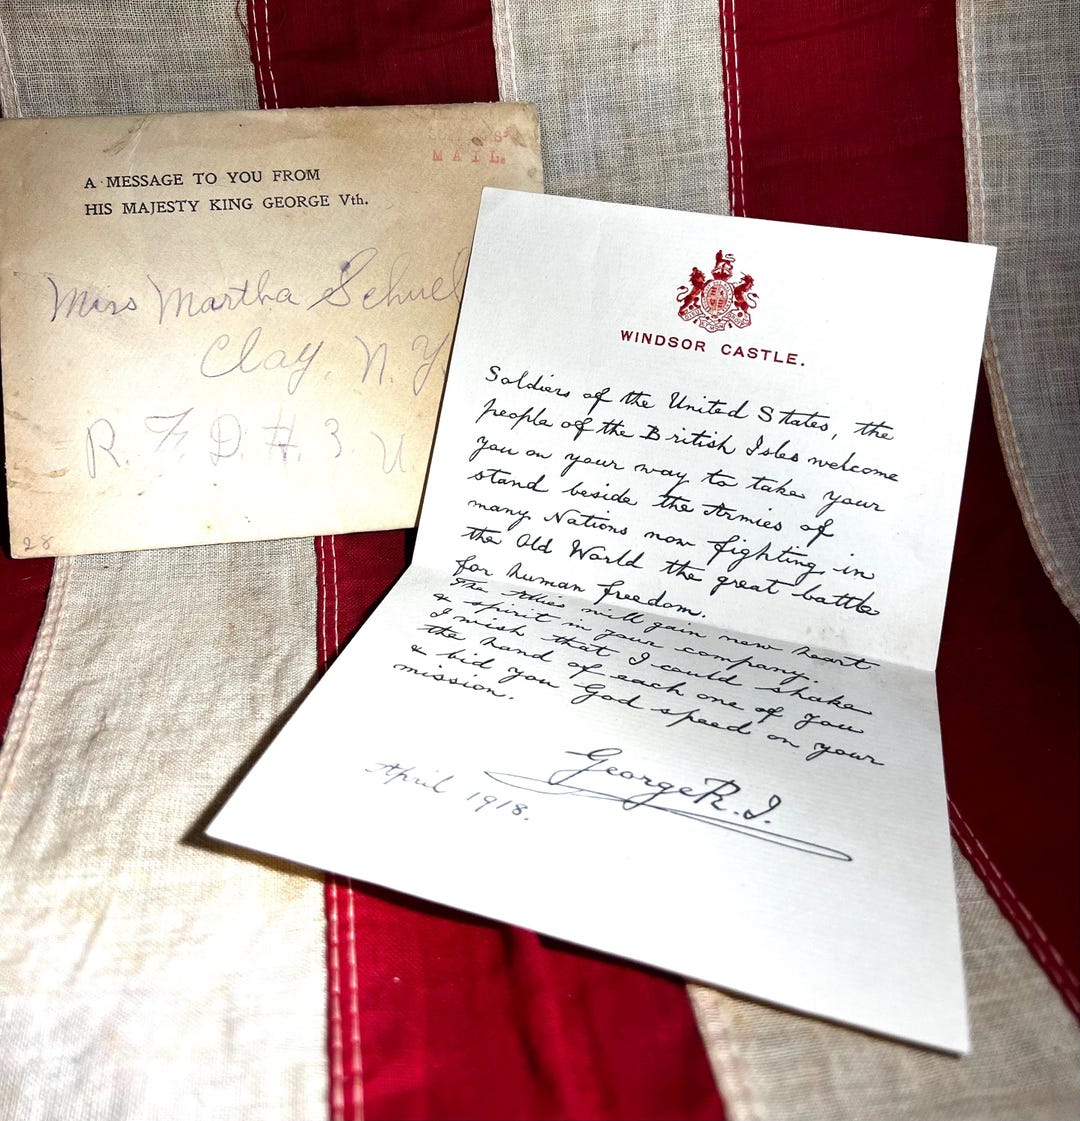 A MESSAGE TO YOU FROM
HIS MAJESTY KING GEORGE Vth.
MAIL
Miss Martha
Clay, N. Y.
R. F. D. #. 3. U.
28
WINDSOR CASTLE.
Soldiers of the United States, the
people of the British Isles welcome
you on your way to take your
stand beside the Armies of
many Nations now fighting in
the Old World the great battle
for human freedom.
The Allies will gain new heart
& spirit in your company.
I wish that I could shake
the hand of each one of you
& bid you God speed on your
mission.
George R. I.
April 1918.